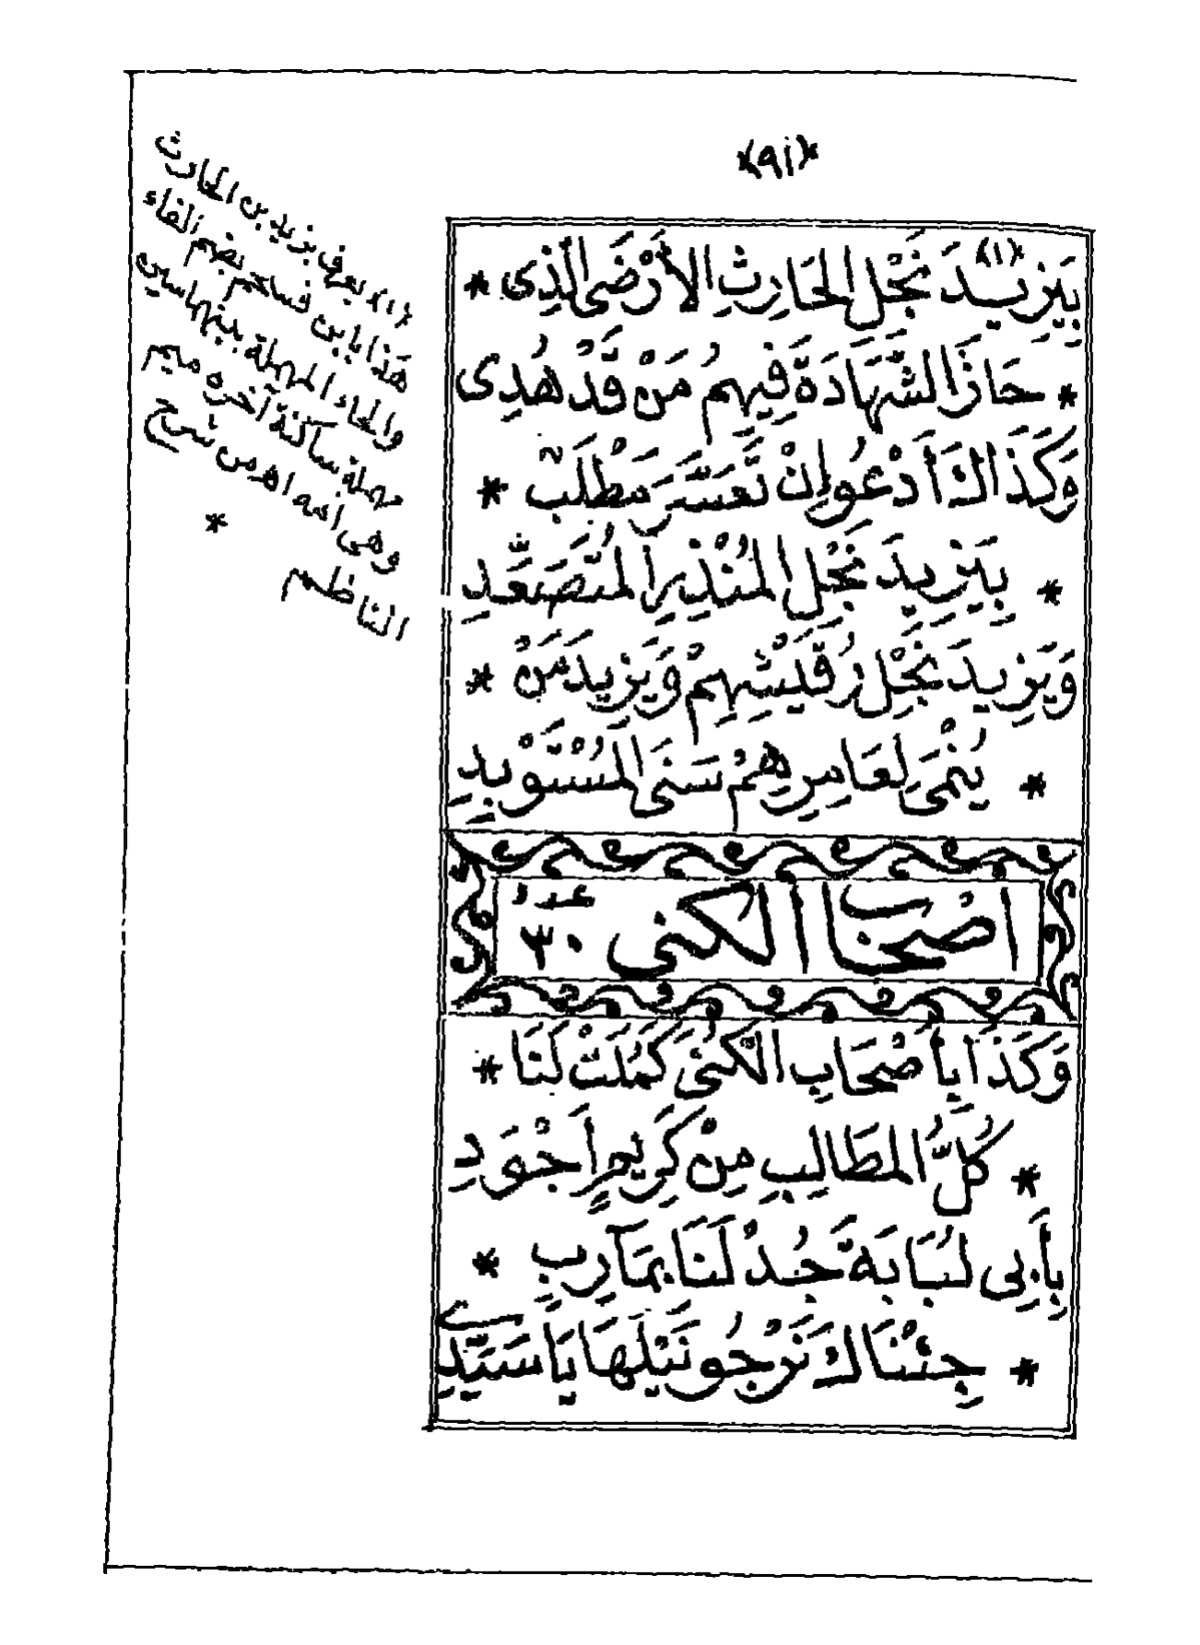 ﴿٩١﴾
بِيَزِيدَ (١) نَجْلِ الحَارِثِ الأَرْضَى الَّذِى *
* حَازَ الشَّهَادَةَ فِيهِمُ مَنْ قَدْ هُدِى
وَكَذَاكَ أَدْعُو إِنْ تَعَسَّرَ مَطْلَبٌ *
* بِيَزِيدَ نَجْلِ المُنْذِرِ المُتَصَعِّدِ
وَيَزِيدَ نَجْلِ رُقَيْشِهِمْ وَيَزِيدَ مَنْ *
* يُنْمَى لِعَامِرِهِمْ سَنَى المُسْتَوْبِدِ
اصْحَابُ الكنى عدد ٣٠
وَكَذَا بِأَصْحَابِ الكُنَى كَمُلَتْ لَنَا *
* كُلُّ المَطَالِبِ مِنْ كَرِيمٍ أَجْوَدِ
بِأَبِى لُبَابَةَ جُدْ لَنَا بِمَآرِبِ *
* جِئْنَاكَ نَرْجُو نَيْلَهَا يَا سَيِّدِي
(١) يعرف يزيد بن الحارث
هذا بابن فسحم بضم الفاء
والحاء المهملة بينهما سين
مهملة ساكنة آخره ميم
وهى أمه اهـ من شرح
الناظم *